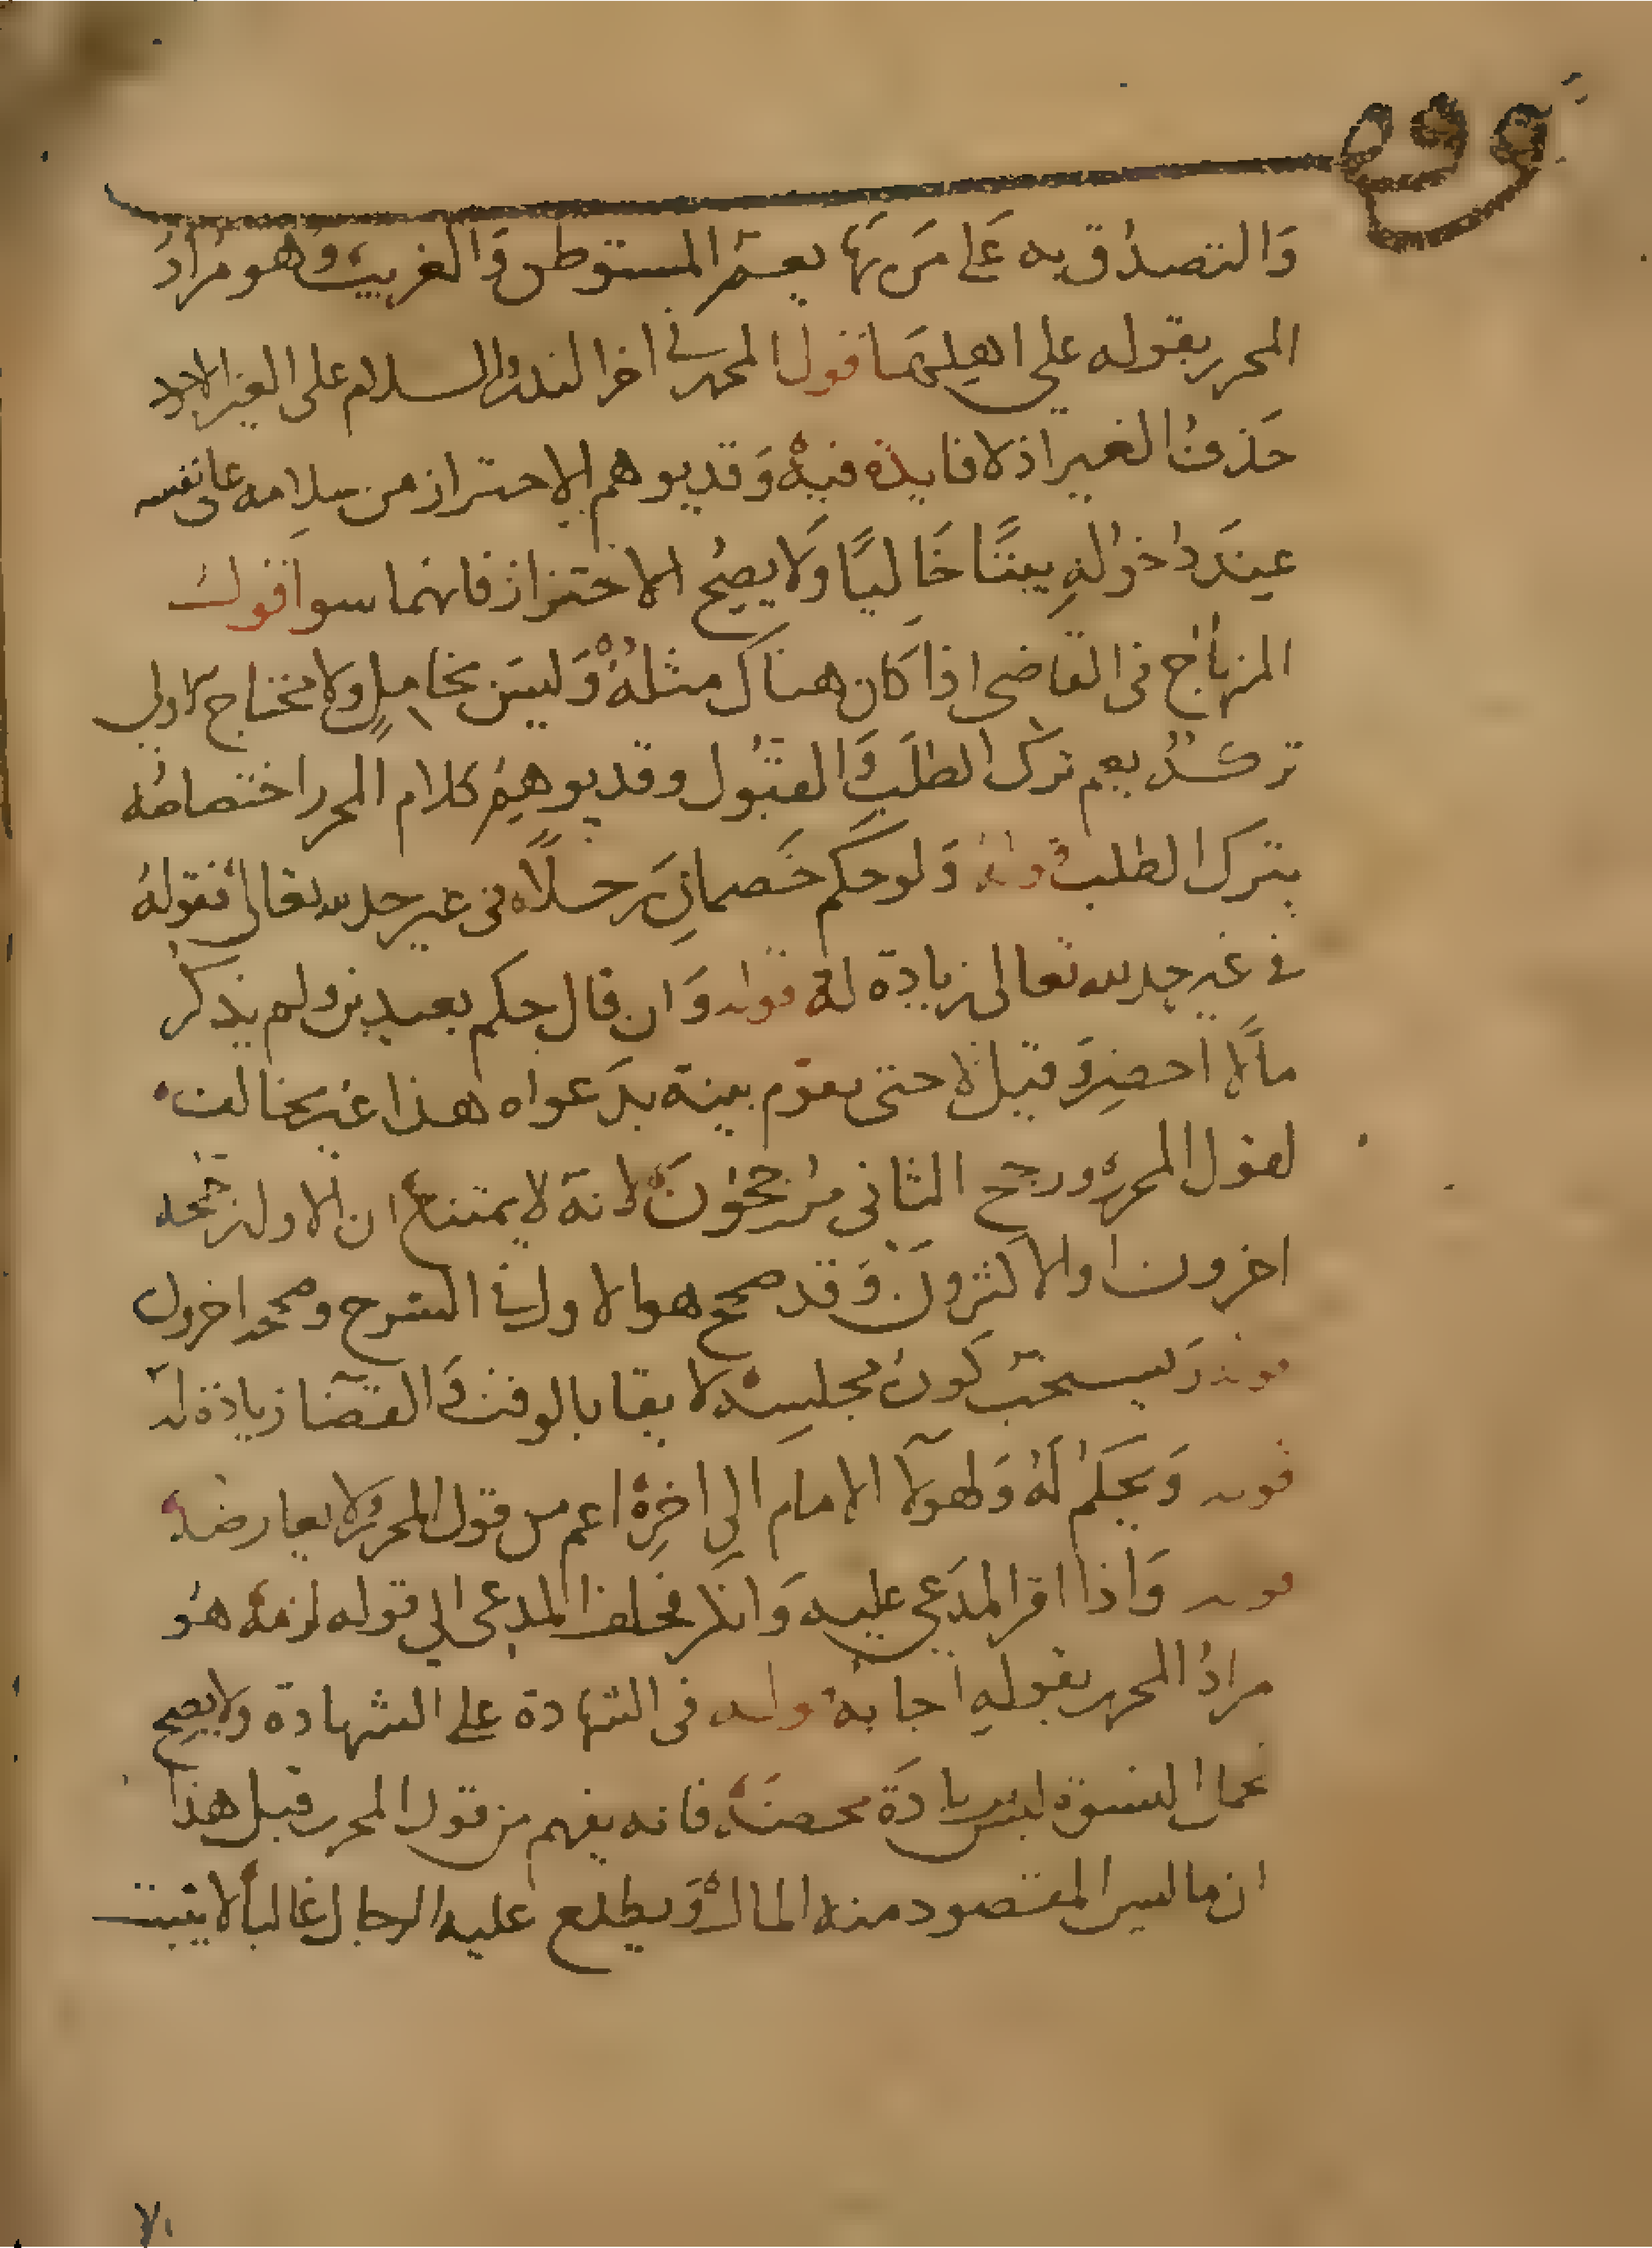 وقف
وَالتصدُق به عَلى مَن بهَا يعمّ المستوطن وَالغريب وَهو مرادُ
المحرر بقوله على اهلها قول المحرر في اخر النذر السلام على الغير الاولى
حَذفُ الغير اذ لا فايدة فيه وَقد يوهم الاحتراز من سلامه على نفسه
عِندَ دُخولهِ بيتًا خَاليًا وَلا يصِحُ الاحتراز فانهما سوا قول
المنهاج في القاضي اذا كان هناك مثلهُ وَليسَ بخاملٍ ولا محتاج الاولى
تركهُ يعم ترك الطلَبِ وَالقبُول وقد يوهِمُ كلام المحرر اختصاصُه
بترك الطلب قوله وَلو حكم خَصمانِ رجلًا في غير حد لله تعالى فقوله
في غير حد لله تعالى زيادة له قوله وَان قال حكم بعبدين ولم يذكر
مالًا احضِرَ وَقيل لا حتى تقوم بينة بدَعواه هذا غير مخالف
لقول المحرر ورجح الثاني مُرَجحُونَ لانه لا يمتنع ان الاول رجحه
اخرون او الاكثرونَ وَقد صحح هو الاول في الشرح وصححه اخرون
قوله وَيستحبّ كون مجلسه لايقا بالوقت وَالقضَا زيادة له
قوله وَيحكمُ لَهُ وَلهولآ الامام الى اخرِه اعم من قول المحرر ولا يعارضه
قوله وَاذا اقر المدَعى عليه وَانكر فحلف المدعى الى قوله لزمهُ هُو
مرادُ المحرر بقولهِ اجابهُ قوله في الشهادة على الشهادة ولا يصح
تحمل النسوة ليس زيادَة محضَة فانه يفهم من قول المحرر قبل هذا
ان ما ليس المقصود منه المال وَيطلع عليه الرجال غالبًا لا يثبت